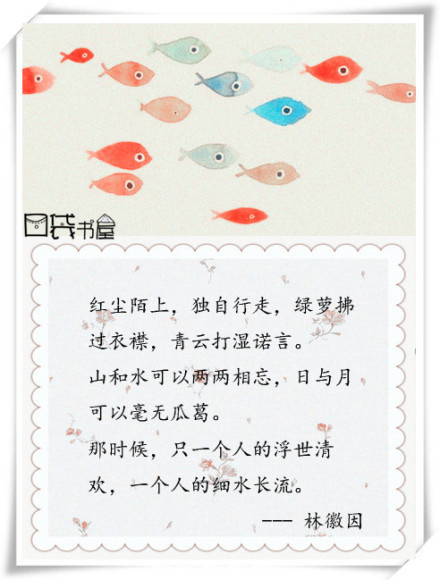 口袋书屋
红尘陌上，独自行走，绿萝拂
过衣襟，青云打湿诺言。
山和水可以两两相忘，日与月
可以毫无瓜葛。
那时候，只一个人的浮世清
欢，一个人的细水长流。
--- 林徽因